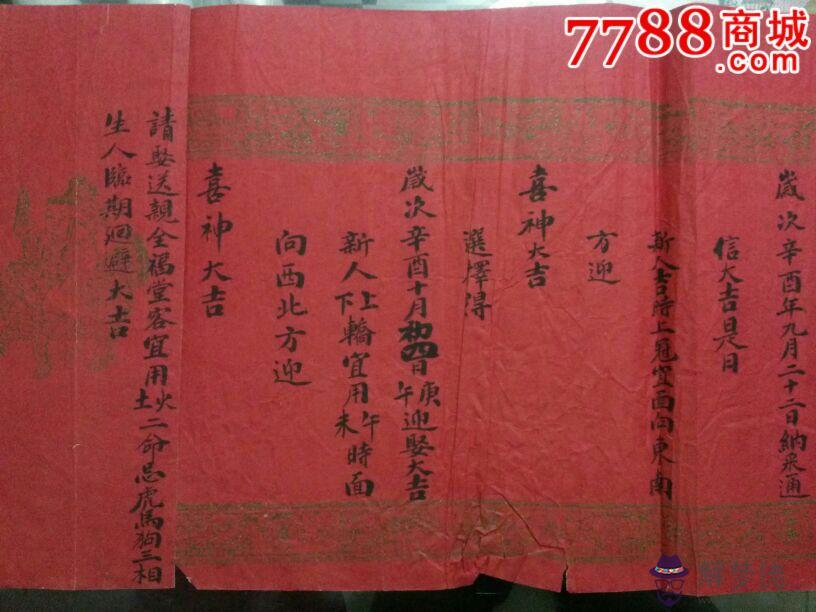 7788商城
歲次辛酉年九月二十二日納采通
信大吉是日
新人吉時上冠宜面向東南
方迎
喜神大吉
選擇得
歲次辛酉十月初四日庚午迎娶大吉
新人上下轎宜用午未時面
向西北方迎
喜神大吉
請娶送親全福堂客宜用火土二命忌虎馬狗三相
生人臨期迴避大吉